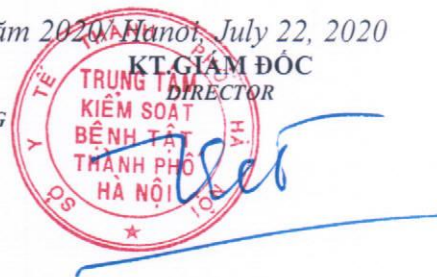 ăm 2020/ Hanoi, July 22, 2020
KT.GIÁM ĐỐC
DIRECTOR
G
SỞ Y TẾ THÀNH PHỐ HÀ NỘI
TRUNG TÂM
KIỂM SOÁT
BỆNH TẬT
THÀNH PHỐ
HÀ NỘI